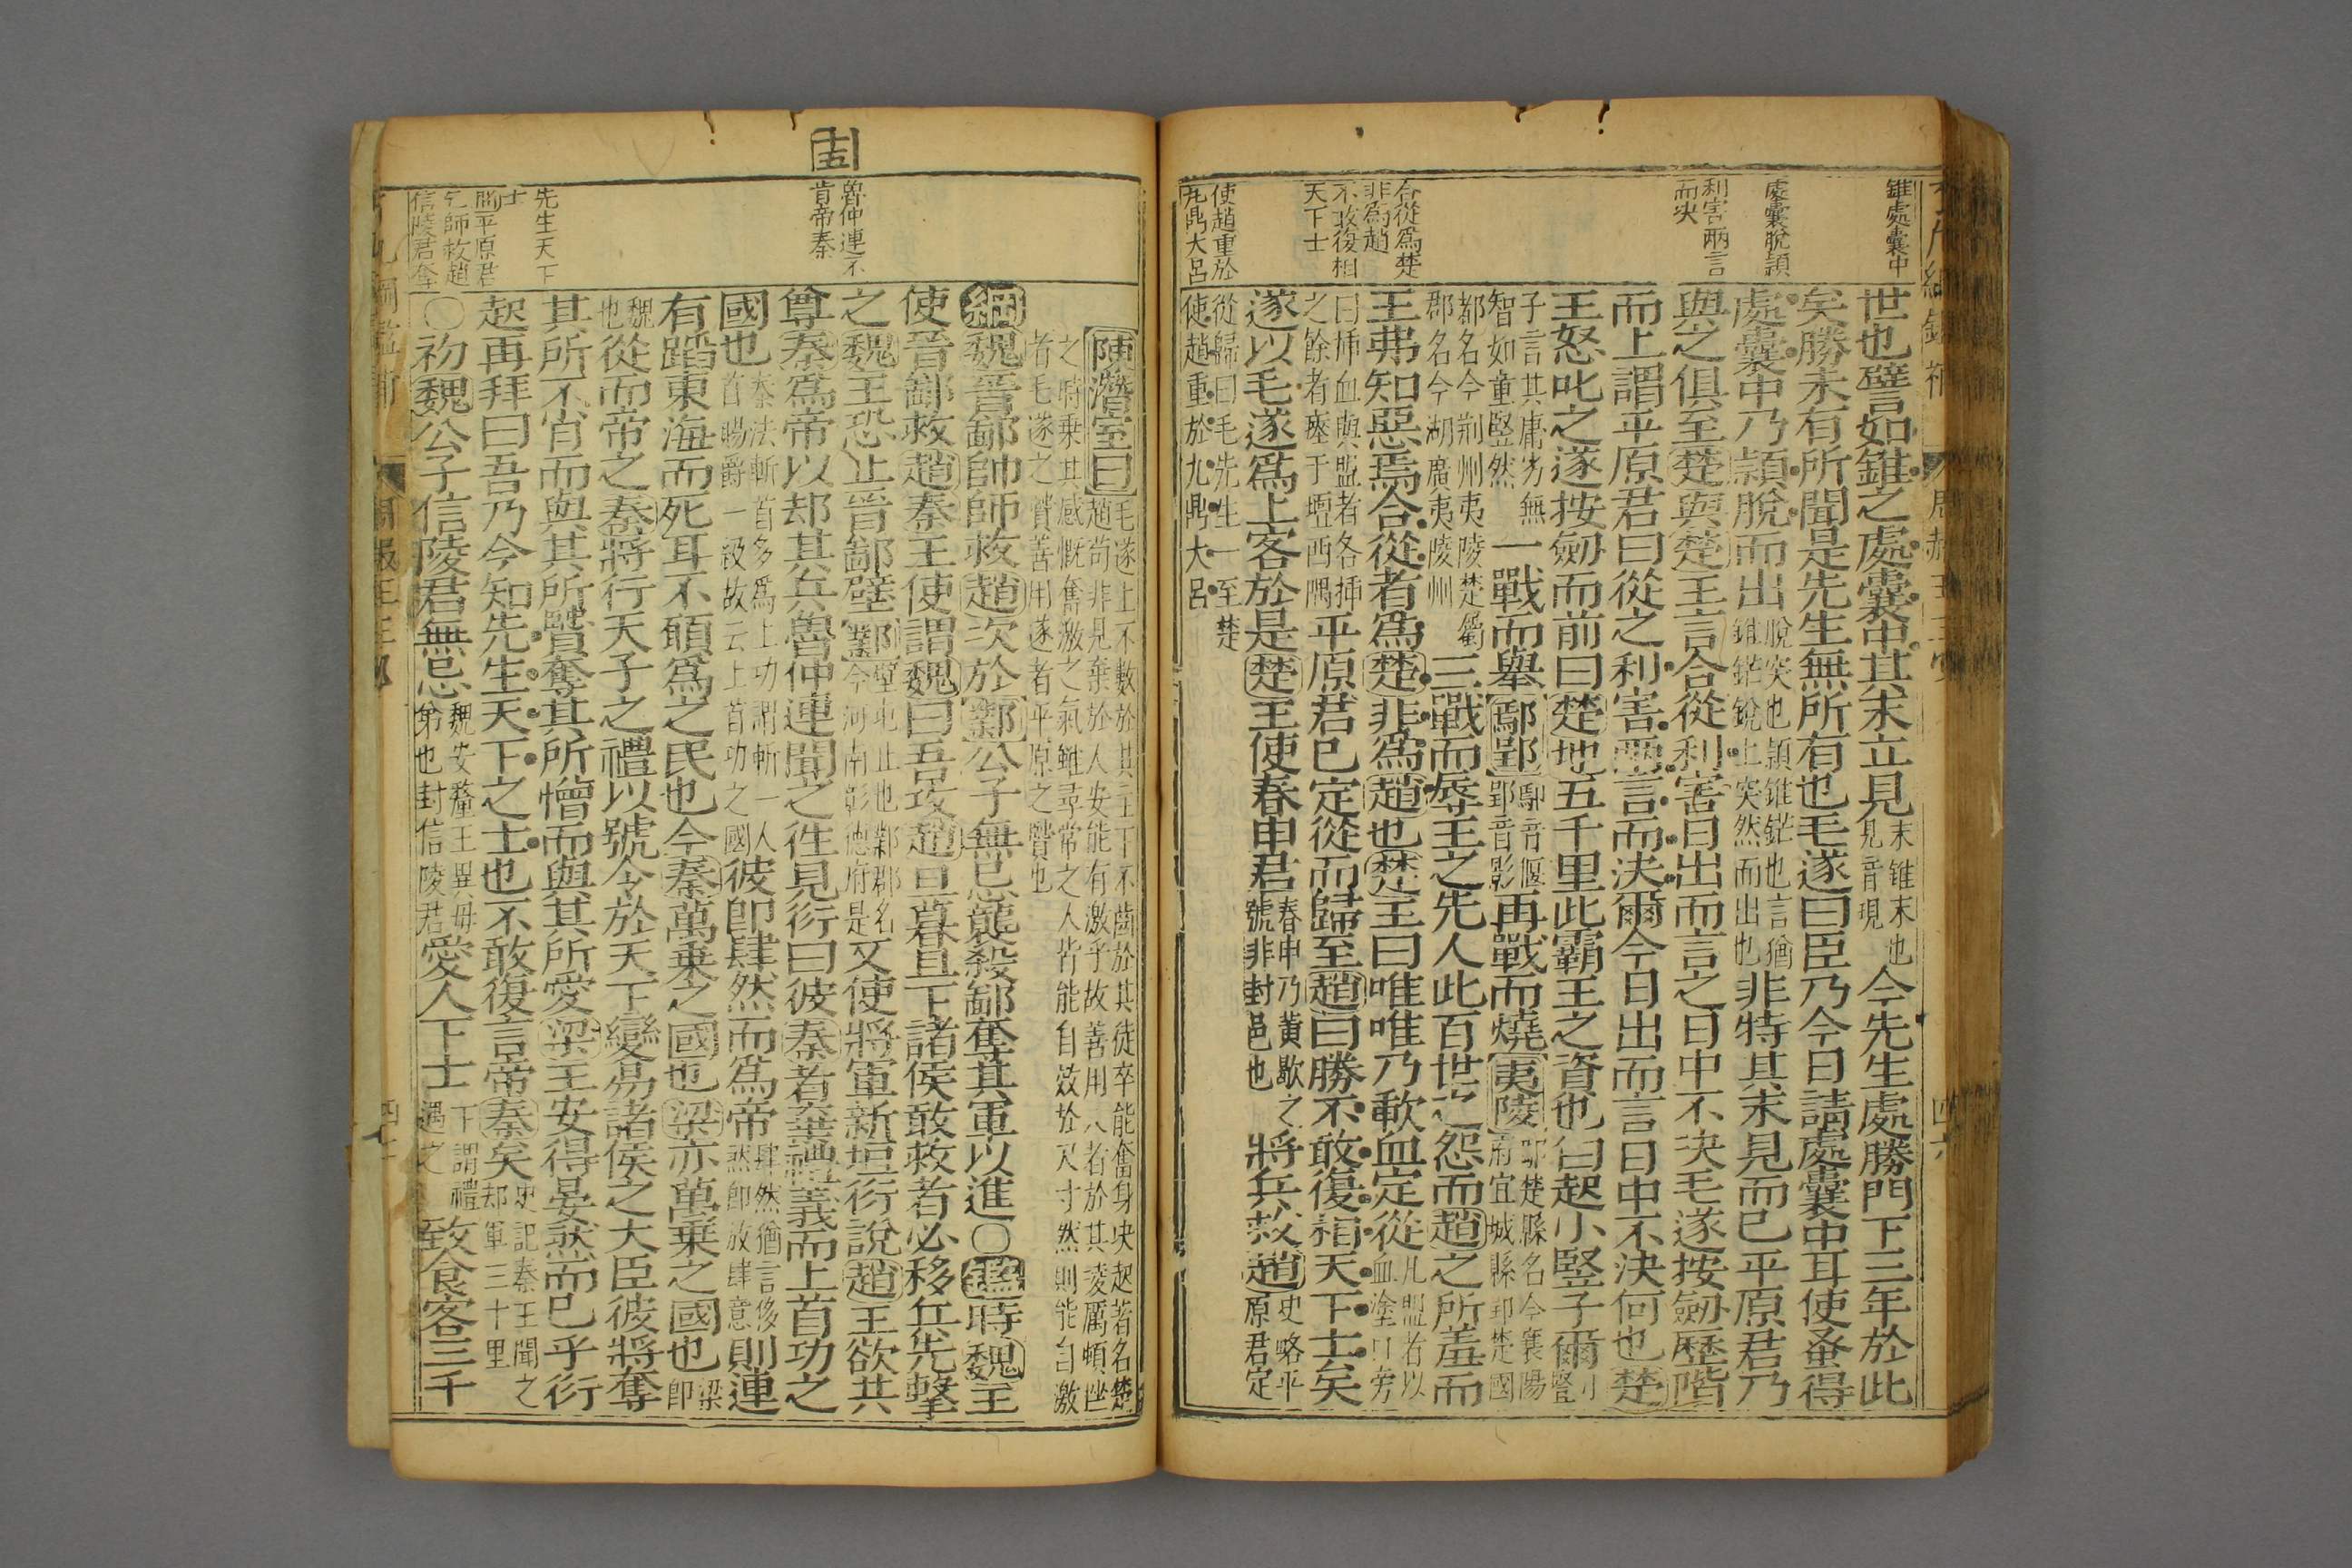 錐處囊中
處囊脫頴
利害兩言
而决
合從爲楚
非爲趙
不敢復相
天下士
使趙重於
九鼎大呂
世也譬如錐之處囊中其末立見末錐末也見音現今先生處勝門下三年於此
矣勝未有所聞是先生無所有也毛遂曰臣乃今日請處囊中耳使蚤得
處囊中乃頴脫而出脫突也頴錐鋩也言猶錐鋩銳上突然而出也非特其末見而已平原君乃
與之俱至楚與楚王言合從利害日出而言之日中不决毛遂按劒歷階
而上謂平原君曰從之利害兩言而决爾今日出而言日中不決何也楚
王怒叱之遂按劒而前曰楚地五千里此霸王之資也白起小豎子爾
子言其庸劣無智如童竪然一戰而舉鄢郢鄢音偃郢音影再戰而燒夷陵鄢楚縣名今襄陽府宜城縣郢楚國
都名今荆州夷陵楚屬郡名今湖廣夷陵州三戰而辱王之先人此百世之怨而趙之所羞而
王弗知惡焉合從者爲楚非爲趙也楚王曰唯唯乃歃血定從凡盟者以血塗口旁
曰揷血與盟者各揷之餘者瘞于壇西隅平原君已定從而歸至趙曰勝不敢復相天下士矣
遂以毛遂爲上客於是楚王使春申君春申乃黃歇之號非封邑也將兵救趙史略平原君定
從歸曰毛先生一至楚使趙重於九鼎大呂
十五
魯仲連不
肯帝秦
先生天下
士
平原君
乞師救趙
信陵君奪
陳潛室曰毛遂上不數於其主下不齒於其徒卒能奮身决起著名楚趙苟非見棄於人安能有激乎故善用人者於其凌厲頓挫
之時乗其感慨奮激之氣雖尋常之人皆能自效於尺寸然則能自激者毛遂之賢善用遂者平原之賢也
綱魏晋鄙帥師救趙次於鄴公子無忌襲殺鄙奪其軍以進○鑑時魏王
使晉鄙救趙秦王使謂魏曰吾攻趙旦暮且下諸侯敢救者必移兵先擊
之魏王恐止晉鄙壁鄴壁屯止也鄴郡名今河南彰德府是又使將軍新垣衍說趙王欲共
尊秦爲帝以却其兵魯仲連聞之徃見衍曰彼秦者棄禮義而上首功之
國也秦法斬首多爲上功謂斬一人首賜爵一級故云上首功之國彼卽肆然而爲帝肆然猶言侈然卽放肆意則連
有蹈東海而死耳不願爲之民也今秦萬乗之國也梁亦萬乗之國也梁卽
魏也從而帝之秦將行天子之禮以號令於天下變易諸侯之大臣彼將奪
其所不肖而與其所賢奪其所憎而與其所愛梁王安得晏然而已乎衍
起再拜曰吾乃今知先生天下之士也不敢復言帝秦矣史記秦王聞之却軍三十里
○初魏公子信陵君無忌魏安釐王異母弟也封信陵君愛人下士下謂禮遇之致食客三千